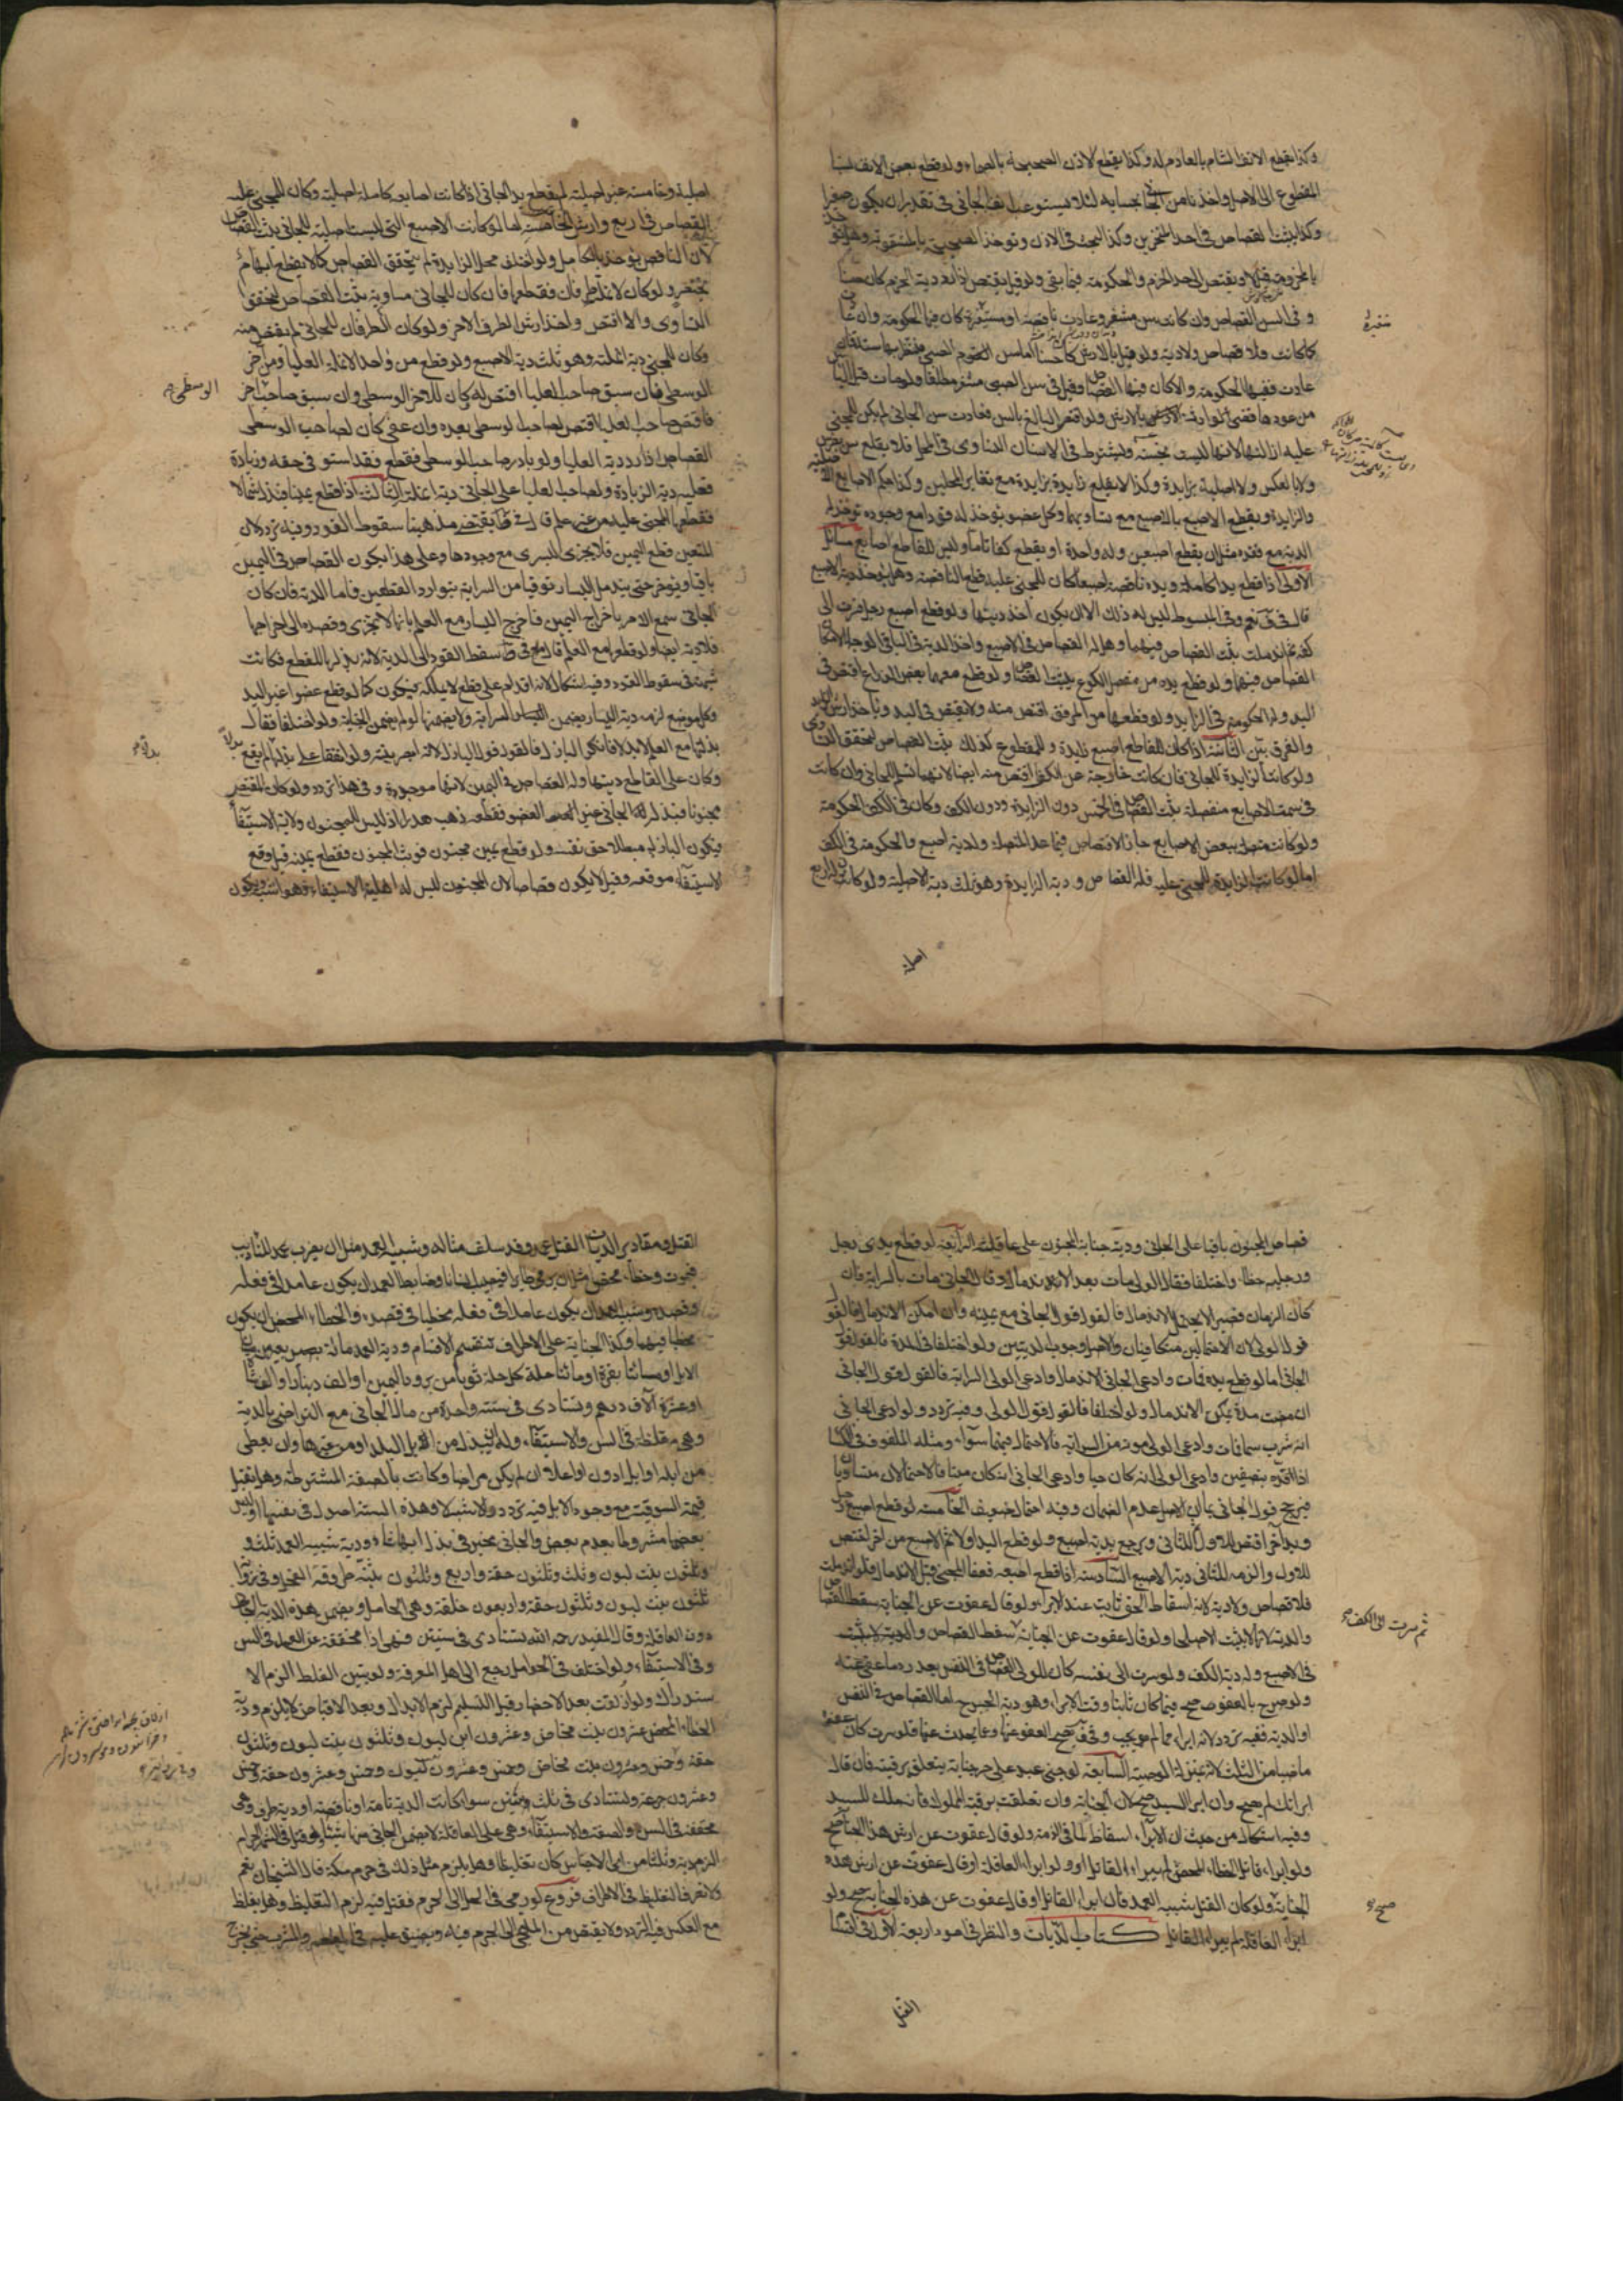 وكذا يقطع الانف الشام بالعادم له وكذا يقطع الاذن الصحيحة بالصماء ولو قطع بعض الانف نسبنا
المقطوع الى الاصل واخذنا من الجانى بحسابه لئلا يستوعب انف الجانى فى تقدير ان يكون صغيرا
وكذا يثبت القصاص فى احد المنخرين وكذا البحث فى الاذن وتوخذ الصحيحة بالمثقوبة وهل توخذ
بالمخرومة قيل لا ويقتص الى حد الخرم والحكومة فيما بقى ولو قيل يقتص اذا رد دية الخرم كان حسنا
و فى السن القصاص وان كانت سن مثغر وعادت ناقصة او متغيرة كان فيها الحكومة وان عادت
كما كانت فلا قصاص ولا دية ولو قيل بالارش كان حسنا اما سن الصبى فينتظر بها سنة فان
عادت ففيها الحكومة والا كان فيها القصاص وقيل فى سن الصبى بعير مطلقا ولو مات قبل الياس
من عودها قضى لوارثه بالارش ولو اقتص البالغ بالسن فعادت سن الجانى لم يكن للمجنى
عليه ازالتها لانها ليست بجنسه ويشترط فى الاسنان التساوى فى المحل فلا يقلع سن بضرس
ولا بالعكس ولا اصلية بزايدة وكذا لا يقلع زايدة بزايدة مع تغاير المحلين وكذا حكم الاصابع الاصلية
والزايدة ويقطع الاصبع بالاصبع مع تساويهما وكل عضو يوخذ له قود مع وجوده توخذ له
الدية مع فقده مثل ان يقطع اصبعين وله واحدة او يقطع كفا تاما وليس للقاطع اصابع مسائل
الاولى اذا قطع يدا كاملة ويده ناقصة اصبعا كان للمجنى عليه قطع الناقصة وهل يوخذ دية الاصبع
قال فى ف نعم وفى المبسوط ليس له ذلك الا ان يكون اخذ ديتها ولو قطع اصبع رجل فسرت الى
كفه ثم اندملت ثبت القصاص فيهما وهل له القصاص فى الاصبع واخذ الدية فى الباقى الوجه لا لامكان
القصاص فيهما ولو قطع يده من مفصل الكوع يثبت القصاص ولو قطع معها بعض الذراع اقتص فى
اليد وله الحكومة فى الزايد ولو قطعها من المرفق اقتص منه ولا يقتص فى اليد وياخذ ارش الزايد
والفرق بين الثانية اذا كان للقاطع اصبع زايدة وللمقطوع كذلك ثبت القصاص لتحقق التساوى
ولو كانت الزايدة للجانى فان كانت خارجة عن الكف اقتص منه ايضا لانها تسلم للجانى وان كانت
فى سمت الاصابع منفصلة ثبت القصاص فى الخمس دون الزايدة ودون الكف وكان فى الكف الحكومة
ولو كانت متصلة ببعض الاصابع جاز الاقتصاص فيما عدا المتصلة وله دية اصبع والحكومة فى الكف
اما لو كانت الزايدة للمجنى عليه فله القصاص ودية الزايدة وهو ثلث دية الاصلية ولو كانت له اربع
اصلية
اصلية وخامسة غير اصلية لم يقطع يد الجانى اذا كانت اصابعه كاملة اصلية وكان للمجنى عليه
القصاص فى اربع وارش الخامسة اما لو كانت الاصبع التى ليست اصلية للجانى ثبت القصاص
لان الناقص يوخذ بالكامل ولو اختلف محل الزايدة لم يتحقق القصاص كما لا يقطع ابهام
بخنصر ولو كان لانملة طرفان فقطعها فان كان للجانى مساوية ثبت القصاص لتحقق
التساوى والا اقتص واخذ ارش الطرف الاخر ولو كان الطرفان للجانى لم يقتص منه
وكان للمجنى دية انملته وهو ثلث دية الاصبع ولو قطع من واحد الانملة العليا ومن اخر
الوسطى فان سبق صاحب العليا اقتص له وكان للاخر الوسطى وان سبق صاحب الوسطى اخر
فاقتص صاحب العليا اقتص لصاحب الوسطى بعده وان عفى كان لصاحب الوسطى
القصاص اذا رد دية العليا ولو بادر صاحب الوسطى فقطع فقد استوفى حقه وزيادة
فعليه دية الزيادة ولصاحب العليا على الجانى دية انملته الثالثة اذا قطع يمينا فبذل شمالا
فقطعها المجنى عليه من غير علم قال فى ط يقتضى مذهبنا سقوط القود وفيه تردد لان
المتعين قطع اليمين فلا يجزى اليسرى مع وجودها وعلى هذا يكون القصاص فى اليمين
باقيا ويوخر حتى يندمل اليسار توقيا من السراية بتوارد القطعين فاما الدية فان كان
الجانى سمع الامر باخراج اليمين فاخرج اليسار مع العلم بانها لا تجزى وقصده الى اخراجها
فلا دية ايضا ولو قطعها مع العلم قال فى ط سقط القود الى الدية لانه بذلها للقطع فكانت
شبهة فى سقوط القود وفيه اشكال لانه اقدام على قطع لا يملكه فيكون كما لو قطع عضوا غير اليد
وكل موضع لزمه دية اليسار يضمن السراية ولا يضمنها لو لم يضمن الجناية ولو اختلفا فقال
بذلتها مع العلم لا بدلا فانكر الباذل فالقول قول الباذل لانه ابصر بنيته ولو اتفقا على بذلها بدلا لم يقع
وكان على القاطع ديتها وله القصاص فى اليمين لانها موجودة وفى هذا تردد ولو كان المقتص
مجنونا فبذل له الجانى غير العضو فقطعه ذهب هدرا اذ ليس للمجنون ولاية الاستيفاء
فيكون الباذل مبطلا حق نفسه ولو قطع يمين مجنون فوثب المجنون فقطع يمينه قيل وقع
الاستيفاء موقعه وقيل لا يكون قصاصا لان المجنون ليس له اهلية الاستيفاء وهو اشبه ويكون
الوسطى
بدلا
قصاص المجنون باقيا على الجانى ودية جناية المجنون على عاقلته الرابعة لو قطع يدى رجل
ورجليه خطا واختلفا فقال الولى مات بعد الاندمال وقال الجانى مات بالسراية فان
كان الزمان قصيرا لا يحتمل الاندمال فالقول قول الجانى مع يمينه وان امكن الاندمال فالقول
قول الولى لان الاحتمالين متكافيان والاصل وجوب الديتين ولو اختلفا فى المدة فالقول قول
الجانى اما لو قطع يده فمات وادعى الجانى الاندمال وادعى الولى السراية فالقول قول الجانى
ان مضت مدة يمكن الاندمال ولو اختلفا فالقول قول الولى وفيه تردد ولو ادعى الجانى
انه شرب سما فمات وادعى الولى موته من السراية فالاحتمال فيهما سواء ومثله الملفوف فى الكساء
اذا قده بنصفين وادعى الولى انه كان حيا وادعى الجانى انه كان ميتا فالاحتمالان متساويا
فيرجح قول الجانى بما ان الاصل عدم الضمان وفيه احتمال ضعيف الخامسة لو قطع اصبع رجل
ويد آخر اقتص للاول ثم للثانى ويرجع بدية اصبع ولو قطع اليد اولا ثم الاصبع من اخر اقتص
للاول والزم للثانى دية الاصبع السادسة اذا قطع اصبعه فعفا المجنى قبل الاندمال فلو اندملت
فلا قصاص ولا دية لانه اسقاط الحق ثابت عند الابراء ولو قال عفوت عن الجناية سقط القصاص
والدية لانها لا يثبت الا صلحا ولو قال عفوت عن الجناية سقط القصاص والدية
فى الاصبع وله دية الكف ولو سرت الى نفسه كان للولى القصاص فى النفس بعد رد ما عفى عنه
ولو صرح بالعفو صح فيما كان ثابتا وقت الابراء وهو دية الجرح اما القصاص فى النفس
او الدية ففيه تردد لانه ابراء مما لم يجب وفى ف يصح العفو عنها وعما يحدث عنها فلو سرت كان عفوه
ماضيا من الثلث لانه بمنزلة الوصية السابعة لو جنى عبد على حر جناية يتعلق برقبته فان قال
ابراتك لم يصح وان ابرا السيد صح لان الجناية وان تعلقت برقبة المملوك فانه ملك للسيد
وفيه اشكال من حيث ان الابراء اسقاط لما فى الذمة ولو قال عفوت عن ارش هذه الجناية صح
ولو ابراء قاتل الخطاء المحض لم يبراء القاتل ولو ابراء العاقلة او قال عفوت عن ارش هذه
الجناية ولو كان القتل شبيه العمد فان ابراء القاتل او قال عفوت عن هذه الجناية صح ولو
ابراء العاقلة لم يبراء القاتل كتاب الديات والنظر فى امور اربعة الاول فى اقسام
ثم سرت الى الكف
صح
القتل
القتل ومقادير الديات القتل عمد وقد سلف مثاله وشبيه العمد مثل ان يضرب للتاديب
فيموت وخطاء محض مثل ان يرمى طايرا فيصيب انسانا وضابط العمد ان يكون عامدا فى فعله
وقصده وشبيه العمد ان يكون عامدا فى فعله مخطيا فى قصده والخطاء المحض ان يكون
مخطيا فيهما وكذا الجناية على الاطراف تنقسم الاقسام ودية العمد ماية بعير من مسان
الابل او مائتا بقرة او مائتا حلة كل حلة ثوبان من برود اليمن او الف دينار او الف شاة
او عشرة آلاف درهم وتستادى فى سنة واحدة من مال الجانى مع التراضى بالدية
وهى مغلظة فى السن والاستيفاء وله ان يبذل من ابل البلد او من غيرها وان يعطى
من ابله او ابل ادون او اعلا ان لم يكن مراضا وكانت بالصفة المشترطة وهل تقبل
قيمة السوقية مع وجود الابل فيه تردد والاشبه لا وهذه الستة اصول فى نفسها وليس
بعضها مشروطا بعدم بعض والجانى مخير فى بذل ايها شاء ودية شبيه العمد ثلث و
وثلثون بنت لبون وثلث وثلثون حقة واربع وثلثون ثنية طروقة الفحل وفى رواية
ثلثون بنت لبون وثلثون حقة واربعون خلفة وهى الحامل ويضمن هذه الدية الجانى
دون العاقلة وقال المفيد رحمه الله تستادى فى سنتين فهى اذا مخففة عن العمد فى السن
وفى الاستيفاء ولو اختلف فى الحوامل رجع الى اهل المعرفة ولو تبين الغلط لزم الا
ستدراك ولو ازلقت بعد الاحضار قبل التسليم لزم الابدال وبعد الاقباض لا يلزم ودية
الخطاء المحض عشرون بنت مخاض وعشرون ابن لبون وثلثون بنت لبون وثلثون
حقة وخمس وعشرون بنت مخاض وخمس وعشرون بنت لبون وخمس وعشرون حقة وخمس
وعشرون جذعة وتستادى فى ثلث سنين سواء كانت الدية تامة او ناقصة او دية طرف وهى
مخففة فى السن والصفة والاستيفاء وهى على العاقلة لا يضمن الجانى منها شيئا ولو قتل فى الشهر الحرام
الزم دية وثلثا من اى الاجناس كان تغليظا وهل يلزم مثل ذلك فى حرم مكة قال الشيخان نعم
ولا نعرف التغليظ فى الاطراف فروع لو رمى فى الحل الى الحرم فقتل فيه لزم التغليظ وهل يغلظ
مع العكس فيه التردد ولا يقتص من الملتجى الى الحرم فيه ويضيق عليه فى المطعم والمشرب حتى يخرج